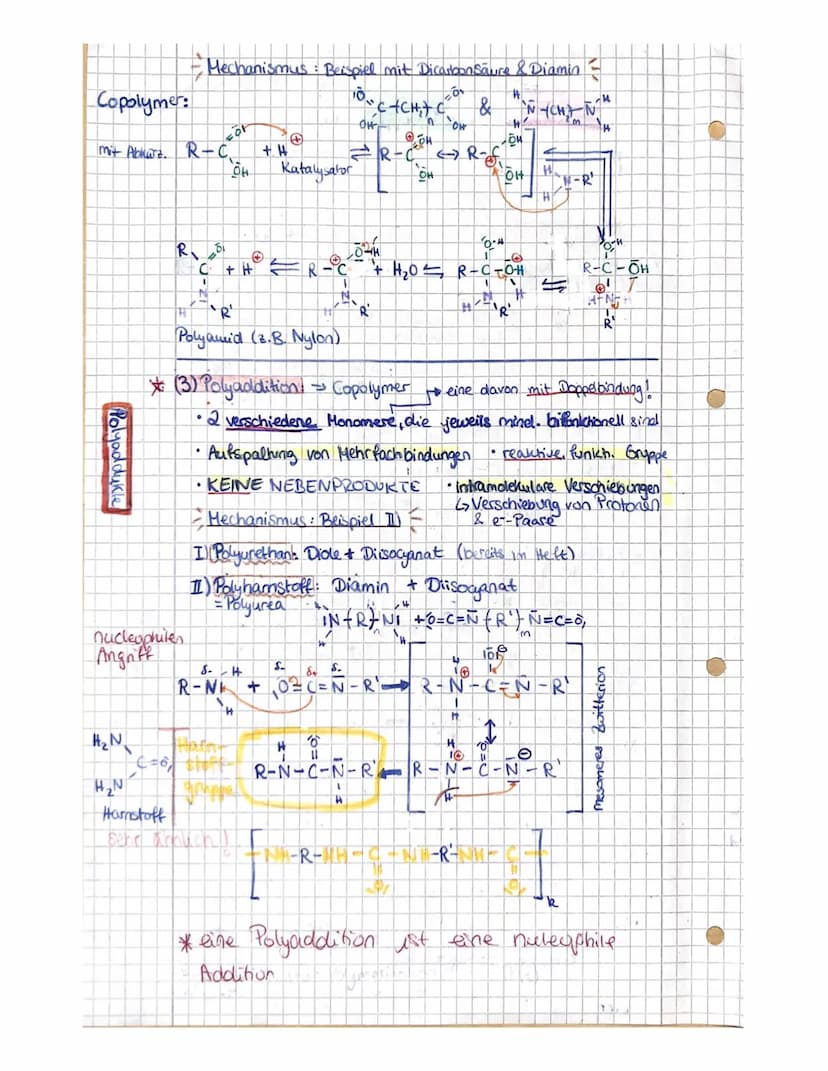 Mechanismus: Beispiel mit Dicarbonsäure & Diamin
Copolymer: &
mit Abkürz. R-C + H⊕ ⇌ [R-C ↔ R-C] H N-R'
Katalysator
R C + H⊕ ⇌ R-C + H₂O ⇌ R-C-O-H ⇌ R-C-OH
Polyamid (z.B. Nylon)
* (3) Polyaddition: → Copolymer → eine davon mit Doppelbindung!
• 2 verschiedene Monomere, die jeweils mind. bifunktionell sind
• Aufspaltung von Mehrfachbindungen • reaktive funkt. Gruppe
• KEINE NEBENPRODUKTE • intramolekulare Verschiebungen
↳ Verschiebung von Protonen
& e⁻-Paare
Mechanismus: Beispiel II)
Polyaddukte
I) Polyurethan: Diole + Diisocyanat (bereits im Heft)
II) Polyharnstoff: Diamin + Diisocyanat
= Polyurea
N-(R)-N + O=C=N-(R')-N=C=O
m
nucleophilen
Angriff
R-N-H + O=C=N-R' → R-N-C=N-R'
mesomeres Zwitterion
H₂N
C=O
H₂N
Harnstoff
sehr ähnlich!
Harn-
stoff-
gruppe
R-N-C-N-R' ← R-N-C-N-R'
[-NH-R-NH-C-NH-R'-NH-C-]k
O O
* eine Polyaddition ist eine nuleophile
Addition